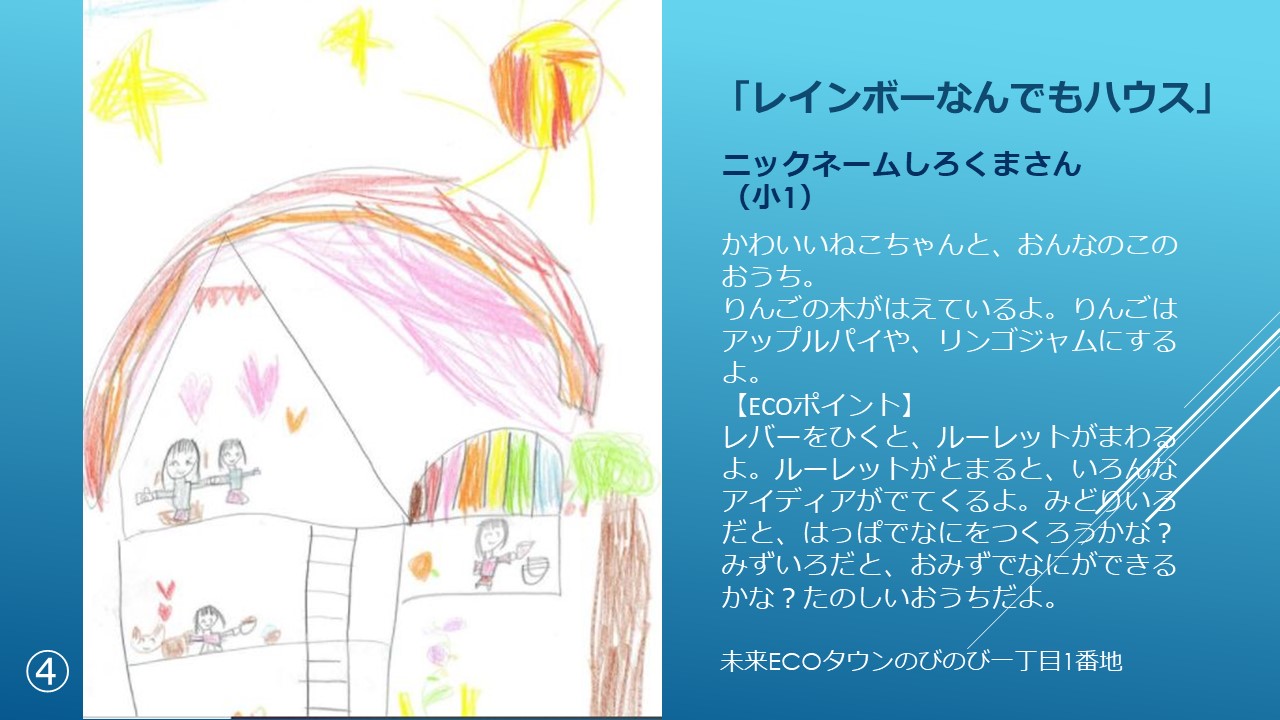 「レインボーなんでもハウス」
ニックネームしろくまさん
（小1）
かわいいねこちゃんと、おんなのこの
おうち。
りんごの木がはえているよ。りんごは
アップルパイや、リンゴジャムにする
よ。
【ECOポイント】
レバーをひくと、ルーレットがまわる
よ。ルーレットがとまると、いろんな
アイディアがでてくるよ。みどりいろ
だと、はっぱでなにをつくろうかな？
みずいろだと、おみずでなにができる
かな？たのしいおうちだよ。
未来ECOタウンのびのび一丁目1番地
④